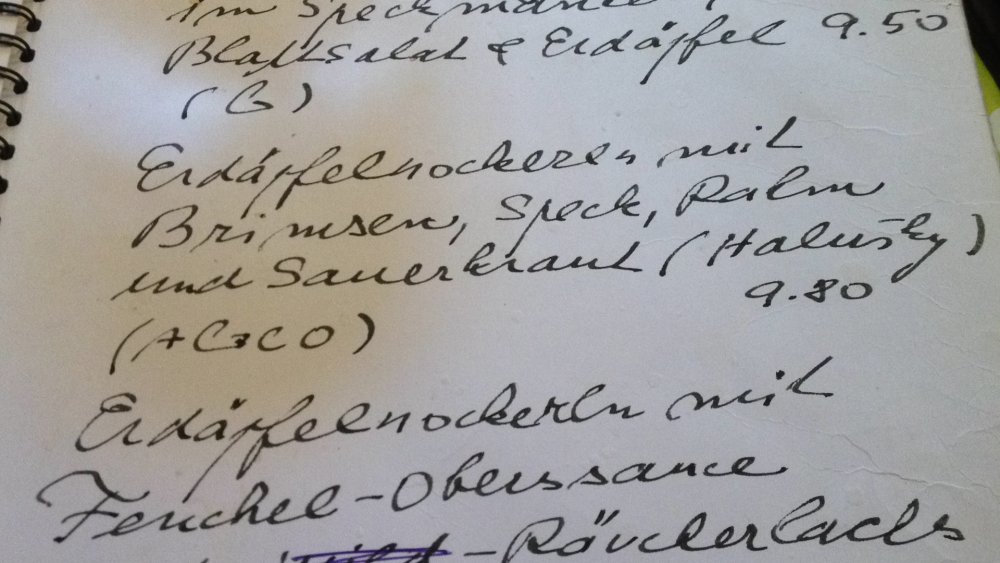 im Speckmantel
Blattsalat & Erdäpfel 9.50
(G)
Erdäpfelnockerln mit
Brimsen, Speck, Rahm
und Sauerkraut (Halušky)
9.80
(AGCO)
Erdäpfelnockerln mit
Fenchel-Oberssauce
-Räucherlachs